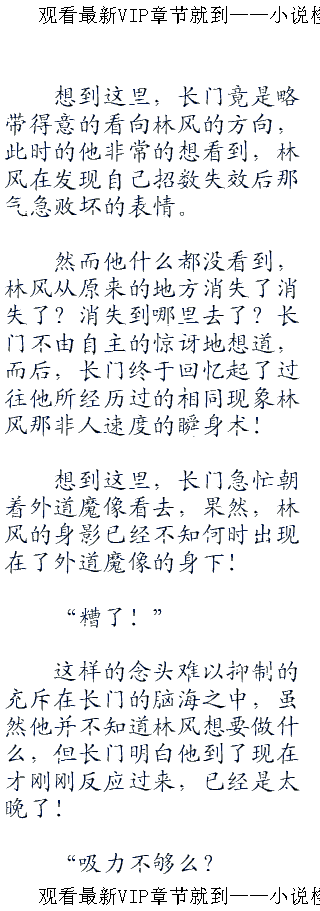 观看最新VIP章节就到——小说
想到这里，长门竟是略
带得意的看向林风的方向，
此时的他非常的想看到，林
风在发现自己招数失效后那
气急败坏的表情。
然而他什么都没看到，
林风从原来的地方消失了消
失了？消失到哪里去了？长
门不由自主的惊讶地想道，
而后，长门终于回忆起了过
往他所经历过的相同现象林
风那非人速度的瞬身术！
想到这里，长门急忙朝
着外道魔像看去，果然，林
风的身影已经不知何时出现
在了外道魔像的身下！
“糟了！”
这样的念头难以抑制的
充斥在长门的脑海之中，虽
然他并不知道林风想要做什
么，但长门明白他到了现在
才刚刚反应过来，已经是太
晚了！
“吸力不够么？
观看最新VIP章节就到——小说